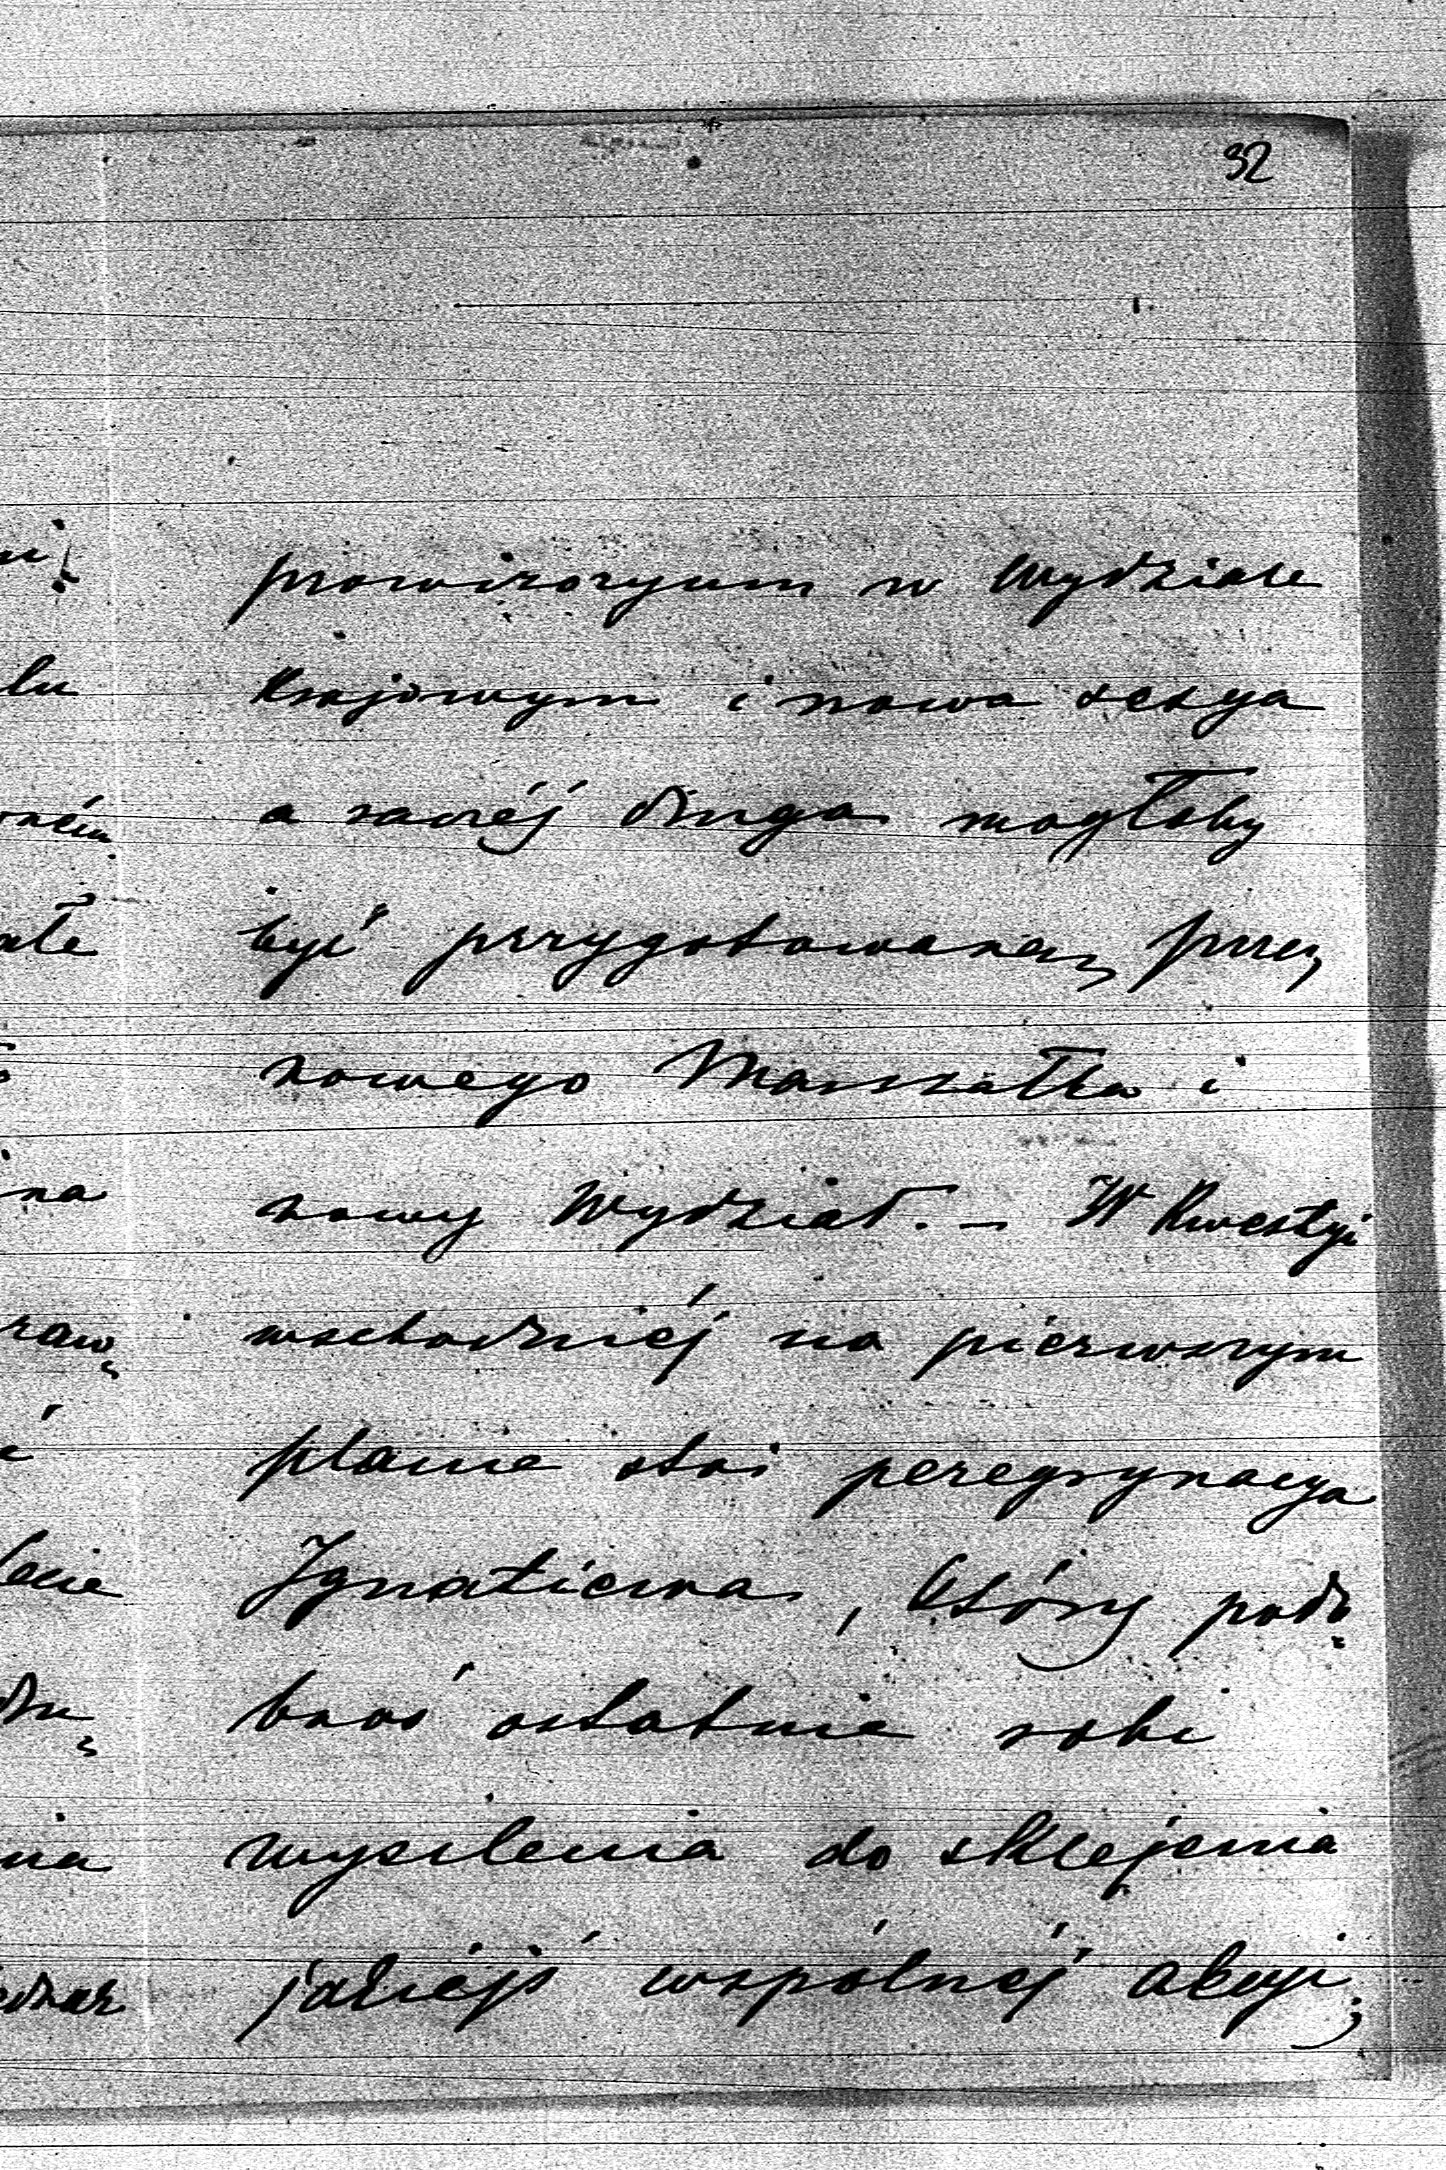 32
prowizoryum w Wydziale
Krajowym i nowa sesya
a raczéj druga mogłaby
być przygotowaną przez
nowego Marszałka i
nowy Wydział. – W Kwestyi
wschodniéj na pierwszym
planie stoi peregrynacya
Ignatiewa, który podo
bnoś ostatnie robi
wysilenia do sklejenia
jakiéjś wspólnéj akcyi;